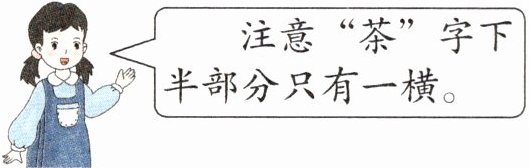 注意“茶”字下
半部分只有一横。